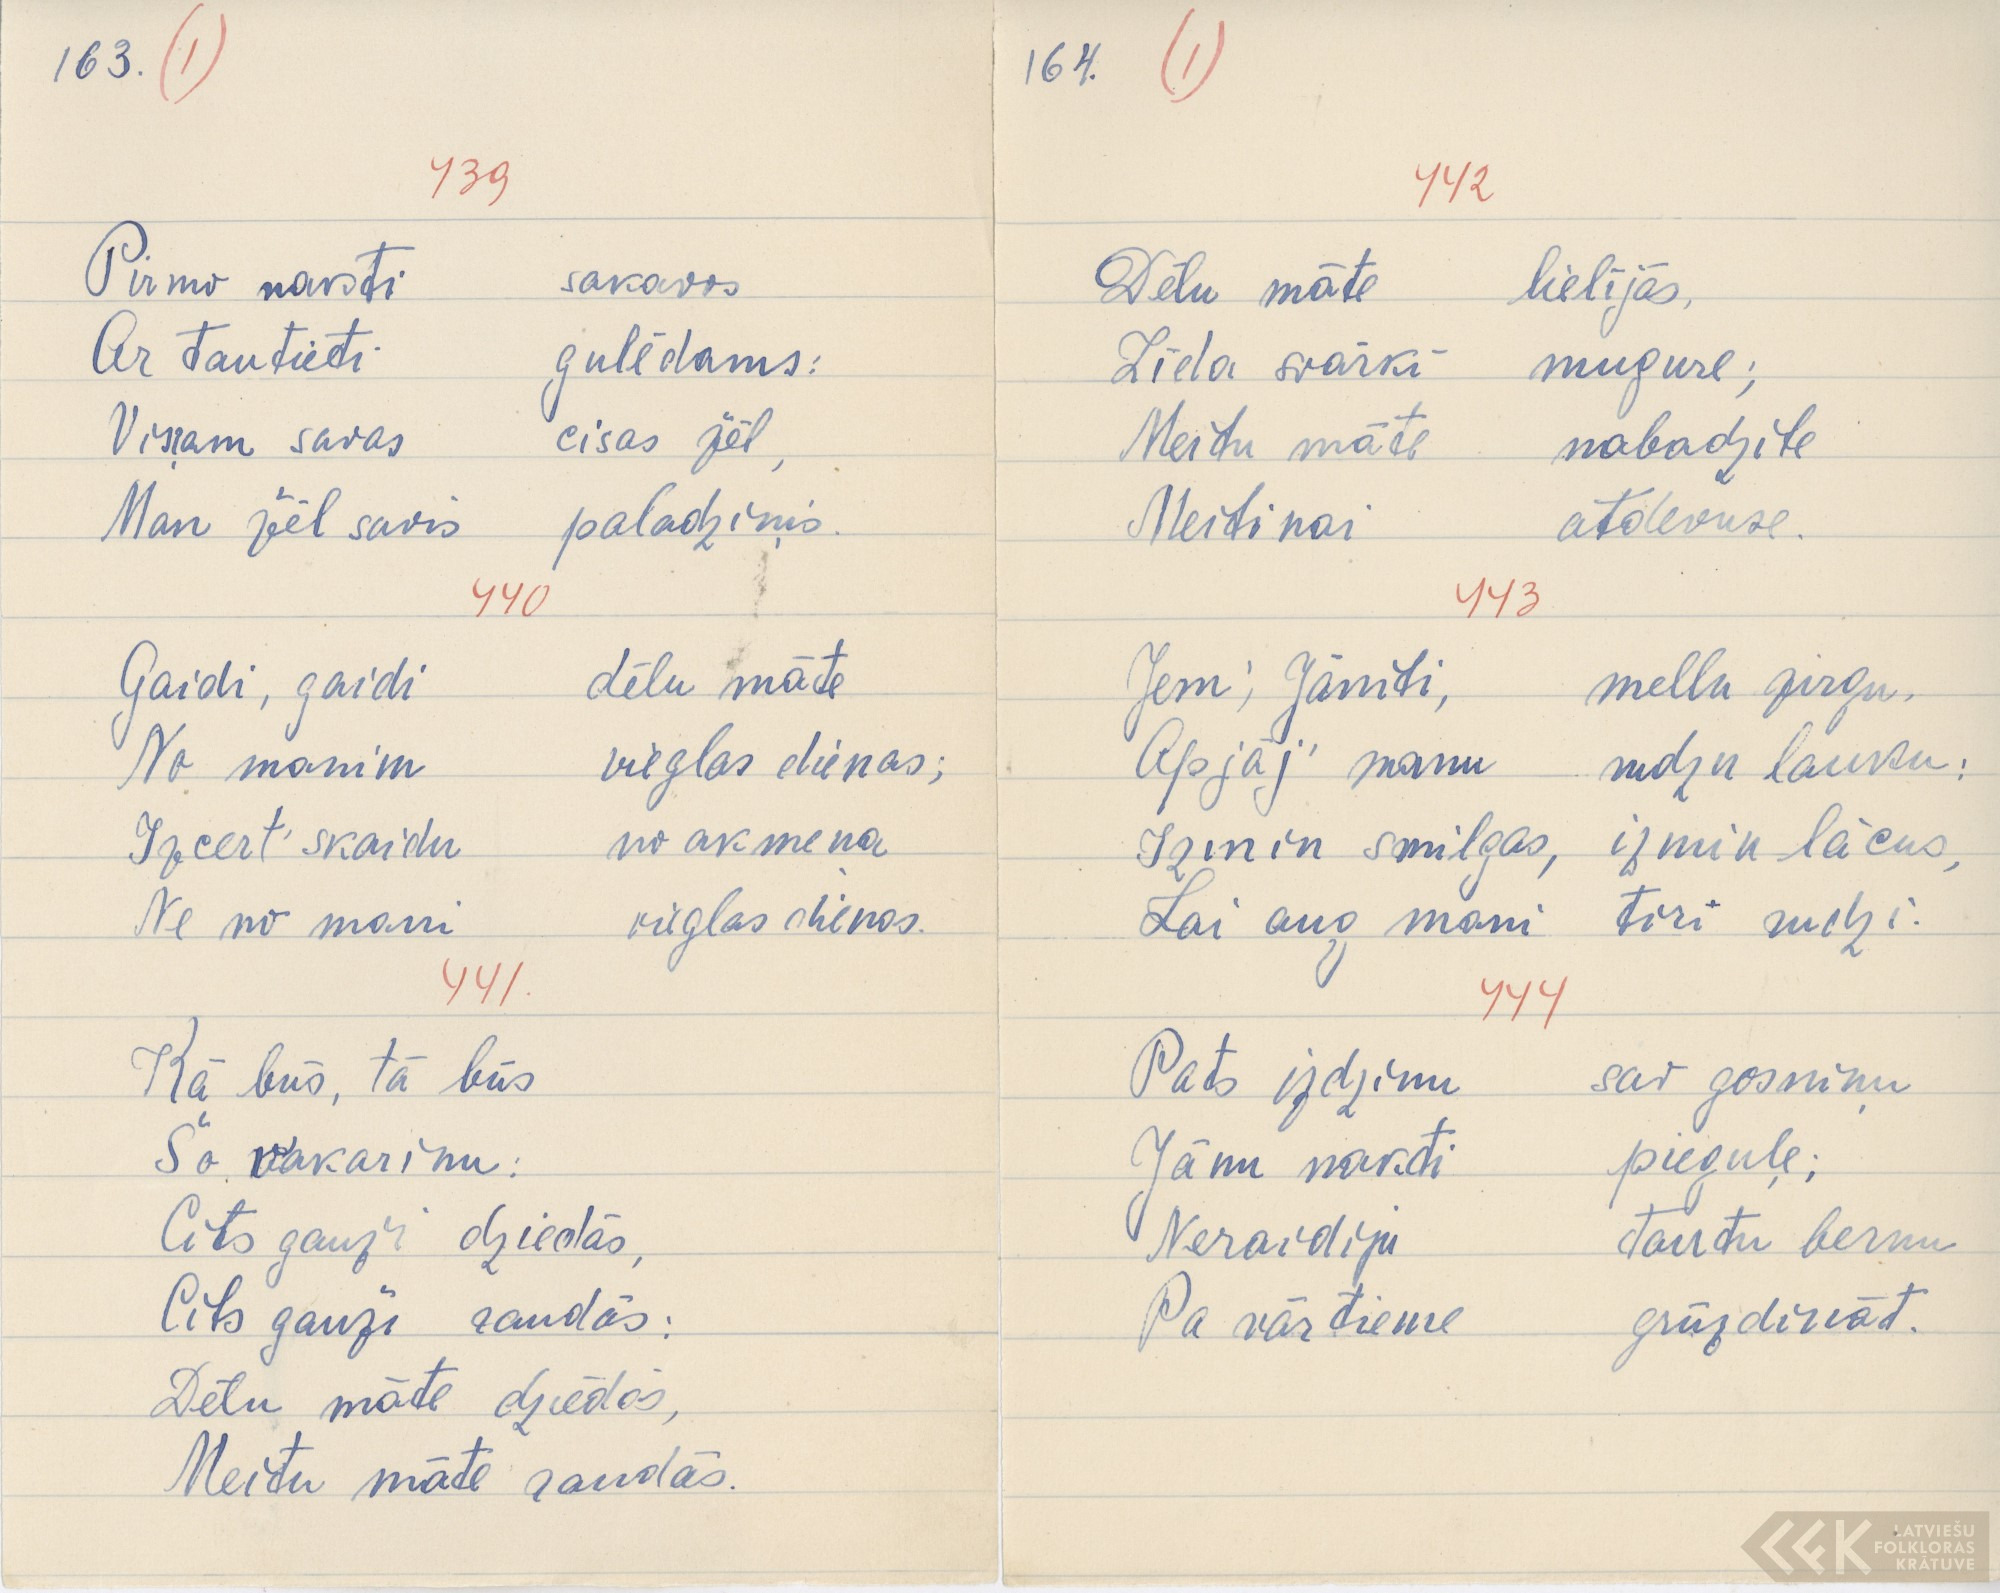 163. (1)
439
Pirmo naksti sakavos
Ar tautieti gulēdams:
Viņam savas cisas žēl,
Man žēl savis paladziņis.
440
Gaidi, gaidi dēlu māte
No manim vieglas dienas;
Izcert' skaidu no akmeņa
Ne no mani vieglas dienas.
441.
Kā būs, tā būs
Šo vakarinu:
Cits gauži dziedās,
Cits gauži raudās:
Dēlu māte dziedās,
Meitu māte raudās.
164. (1)
442
Dēlu māte lielijās,
Zīda svārki mugure;
Meitu māte nabadzite
Meitinai atdevuse.
443
Jem', Jānīti, mellu zirgu,
Apjāj' manu rudzu lauku:
Izmin smilgas, izmin lācus,
Lai aug mani tiri rudzi.
444
Pats izdzinu sav gosniņu
Jāņu nakti pieguļe;
Neraidiju tautu bernu
Pa vārtieme grūzdināt.
LATVIEŠU
FOLKLORAS
KRĀTUVE